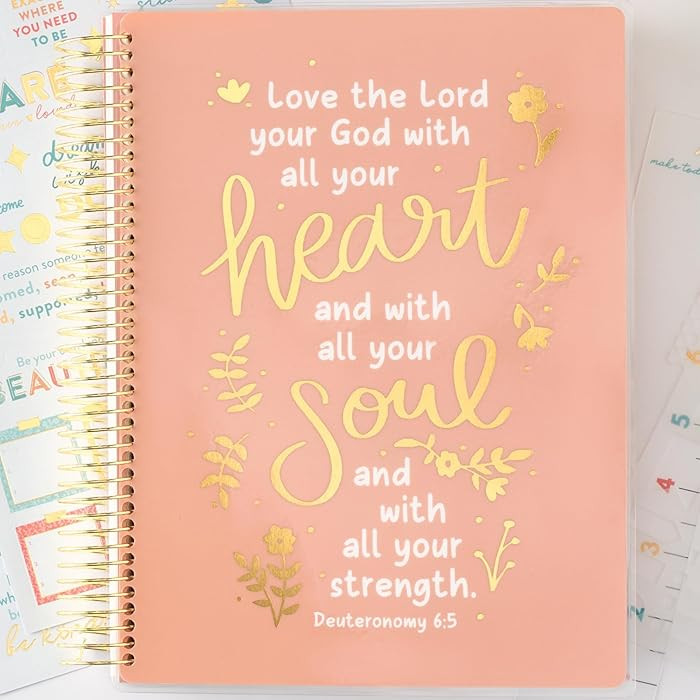 Love the Lord
your God with
all your
heart
and with
all your
soul
and
with
all your
strength.
Deuteronomy 6:5
WHERE
YOU NEED
TO BE
dream
reason someone
supported
Be your
make
5
4
3
2